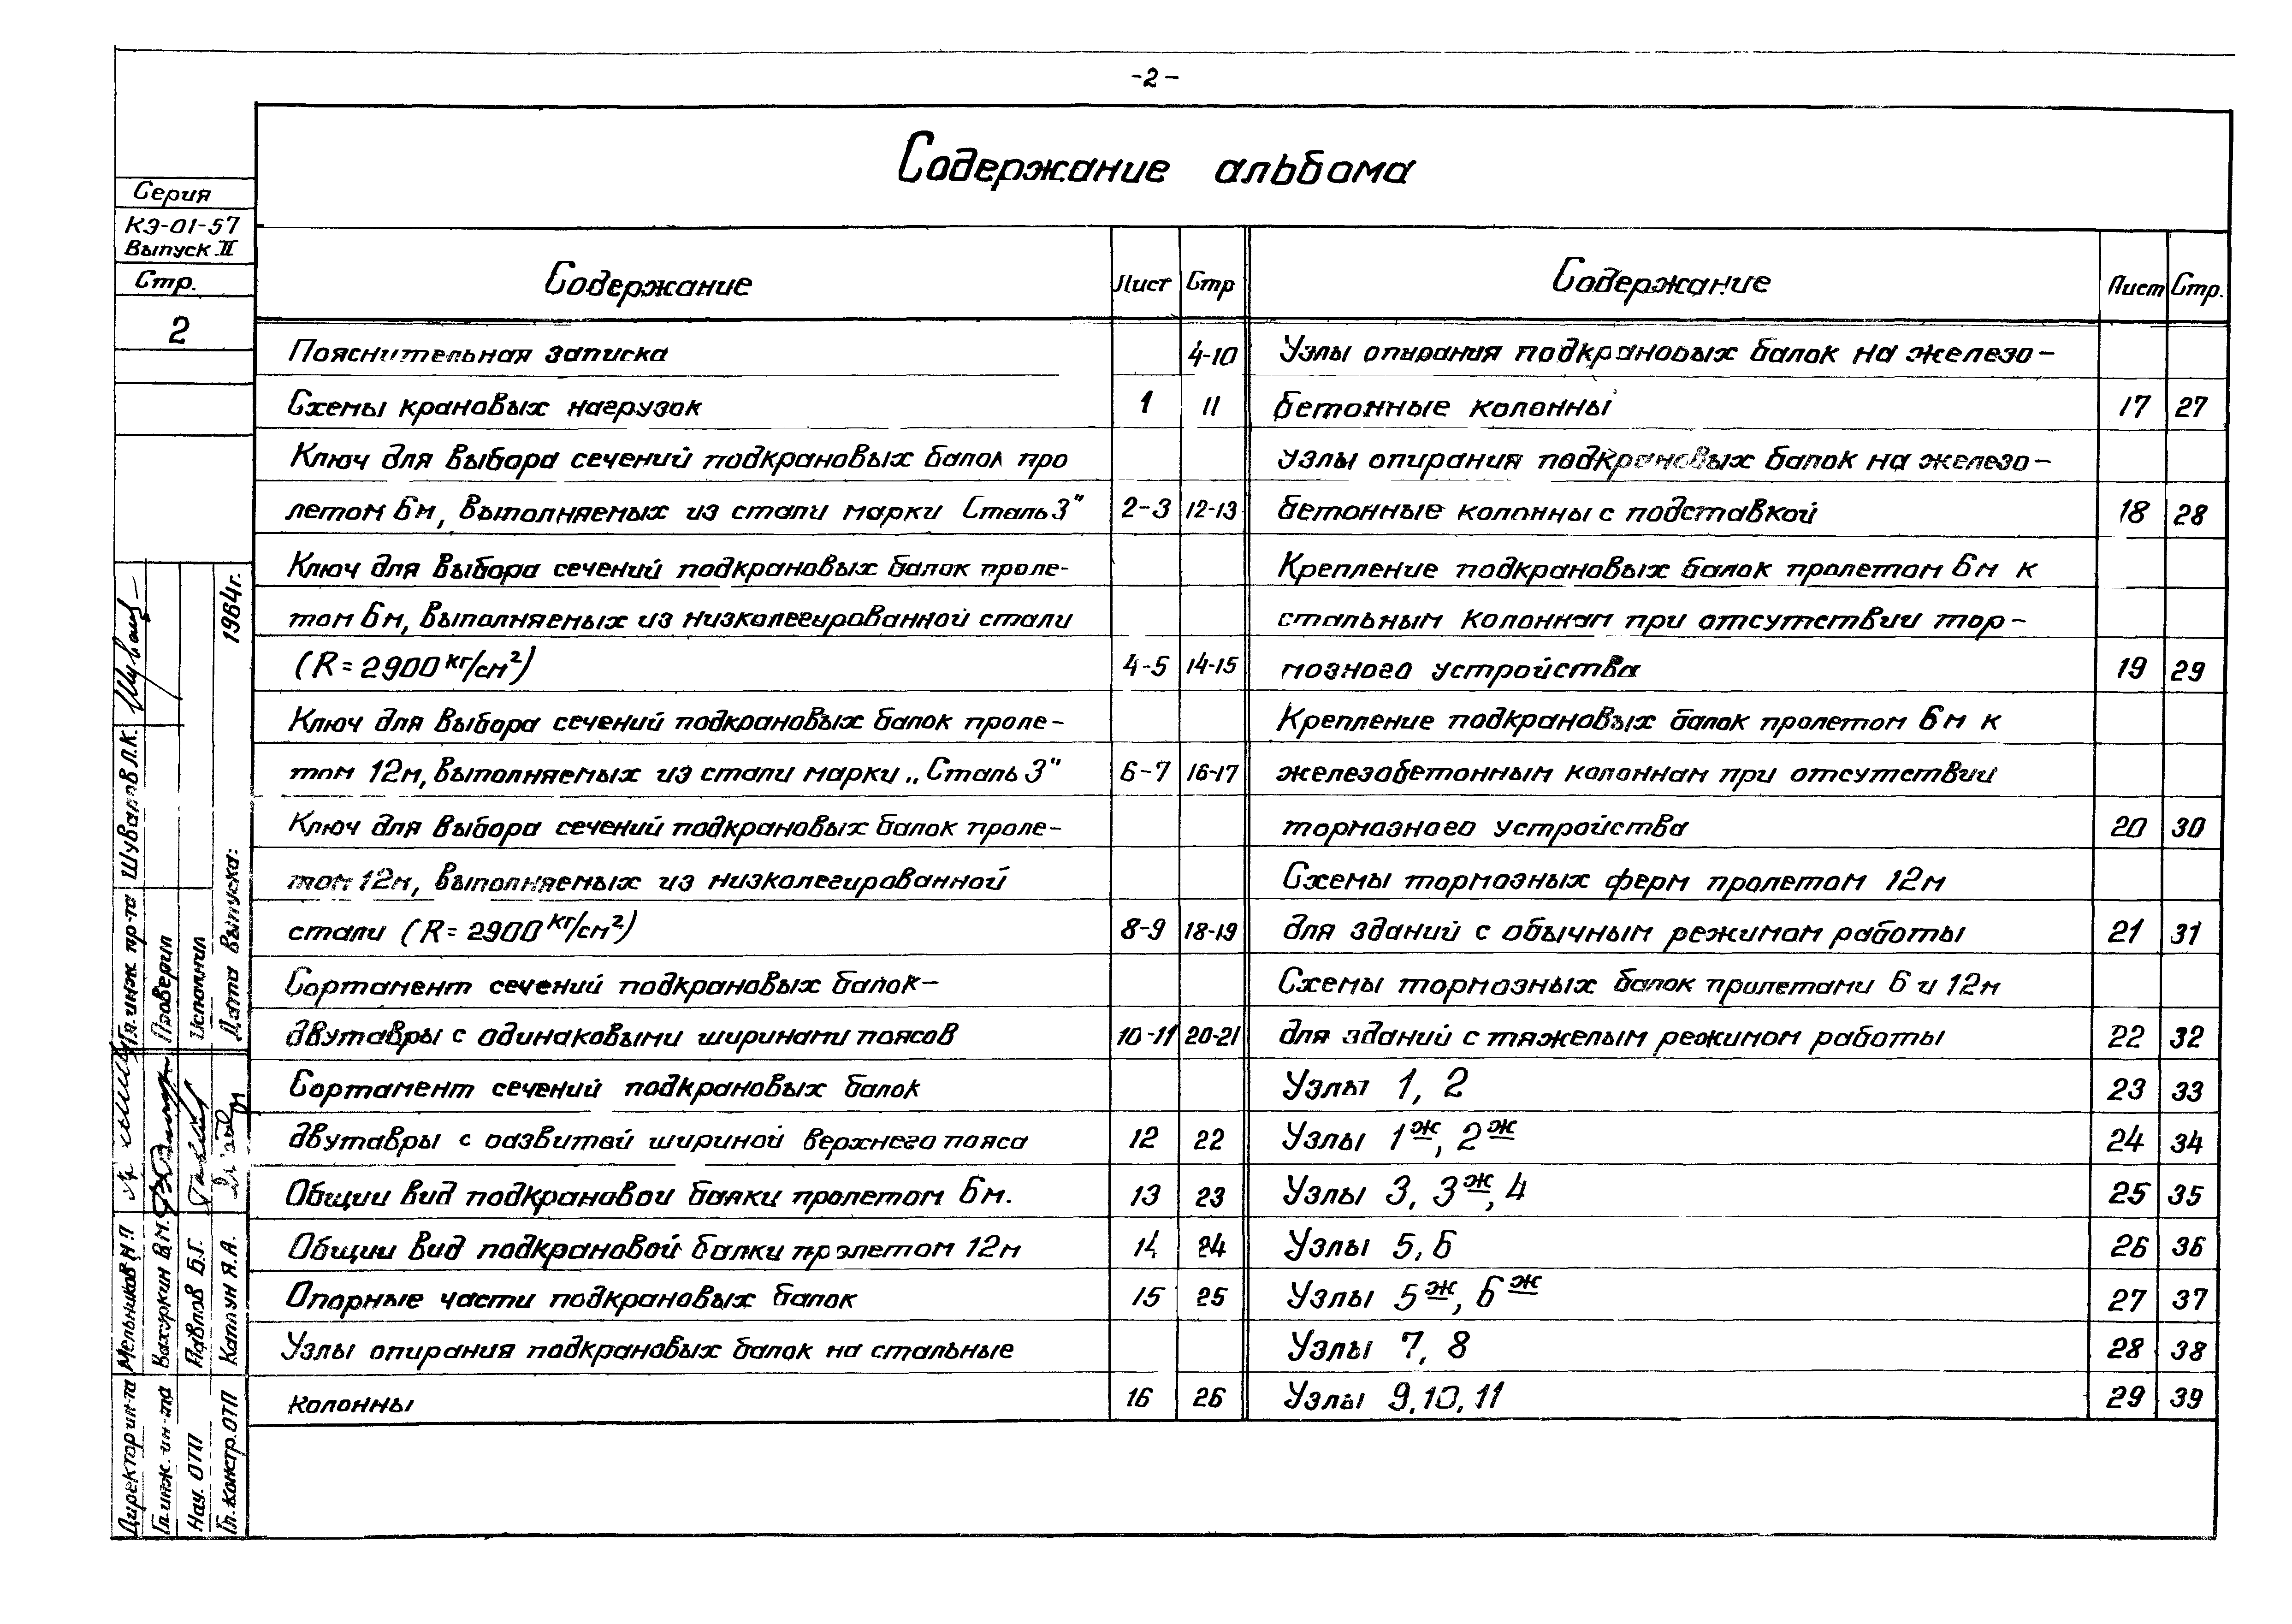 -2-
Содержание альбома
Серия
КЭ-01-57
Выпуск II
Стр.
2
Содержание Лист Стр
Пояснительная записка 4-10
Схемы крановых нагрузок 1 11
Ключ для выбора сечений подкрановых балок про
летом 6м, выполняемых из стали марки Сталь 3" 2-3 12-13
Ключ для выбора сечений подкрановых балок проле-
том 6м, выполняемых из низколегированной стали
(R=2900 кг/см²) 4-5 14-15
Ключ для выбора сечений подкрановых балок проле-
том 12м, выполняемых из стали марки „Сталь 3" 6-7 16-17
Ключ для выбора сечений подкрановых балок проле-
том 12м, выполняемых из низколегированной
стали (R=2900 кг/см²) 8-9 18-19
Сортамент сечений подкрановых балок-
двутавры с одинаковыми ширинами поясов 10-11 20-21
Сортамент сечений подкрановых балок
двутавры с развитой шириной верхнего пояса 12 22
Общий вид подкрановой балки пролетом 6м. 13 23
Общий вид подкрановой балки пролетом 12м 14 24
Опорные части подкрановых балок 15 25
Узлы опирания подкрановых балок на стальные
колонны 16 26
Содержание Лист Стр.
Узлы опирания подкрановых балок на железо-
бетонные колонны 17 27
Узлы опирания подкрановых балок на железо-
бетонные колонны с подставкой 18 28
Крепление подкрановых балок пролетом 6м к
стальным колоннам при отсутствии тор-
мозного устройства 19 29
Крепление подкрановых балок пролетом 6м к
железобетонным колоннам при отсутствии
тормозного устройства 20 30
Схемы тормозных ферм пролетом 12м
для зданий с обычным режимом работы 21 31
Схемы тормозных балок пролетами 6 и 12м
для зданий с тяжелым режимом работы 22 32
Узлы 1, 2 23 33
Узлы 1ж, 2ж 24 34
Узлы 3, 3ж, 4 25 35
Узлы 5, 6 26 36
Узлы 5ж, 6ж 27 37
Узлы 7, 8 28 38
Узлы 9, 10, 11 29 39
Директор ин-та Мельников Н П Гл. инж. пр-та Шувалов Л.К.
Гл. инж. ин-та Вахуркин В М. Проверил
Нач. ОТП Павлов Б.Г. Исполнил
Гл. констр. ОТП Каплун Я.А. Дата выпуска: 1964г.